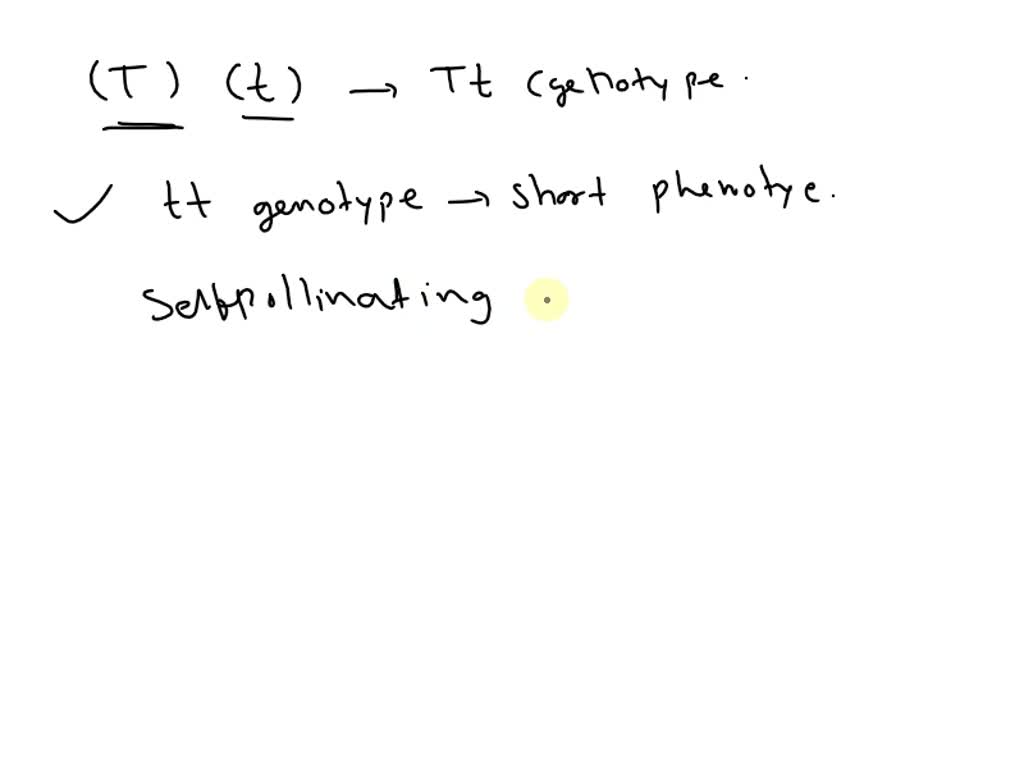 (T) (t) → Tt (genotype.
✓ tt genotype → short phenotye.
Selfpollinating